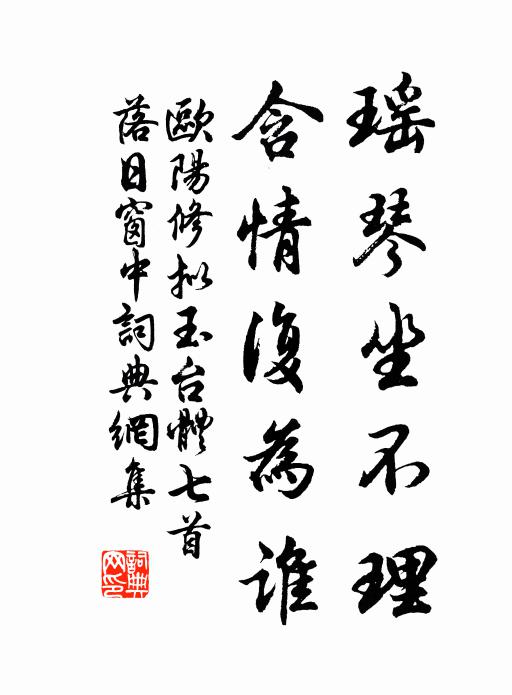 瑶琴坐不理
含情復為誰
歐陽修拟玉台體七首
落日窗中詞典網集
詞典网印